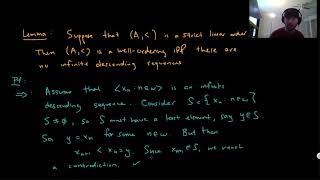 Lemma: Suppose that (A,<) is a strict linear order
Then (A,<) is a well-ordering iff there are
no infinite descending sequences
Pf:
Assume that <xₙ : n∈ω> is an infinite
descending sequence. Consider S={xₙ : n∈ω}
S≠∅, so S must have a least element, say y∈S.
So, y=xₙ for some n∈ω. But then
xₙ₊₁ < xₙ=y. Since xₙ₊₁∈S, we reach
a contradiction. ✓